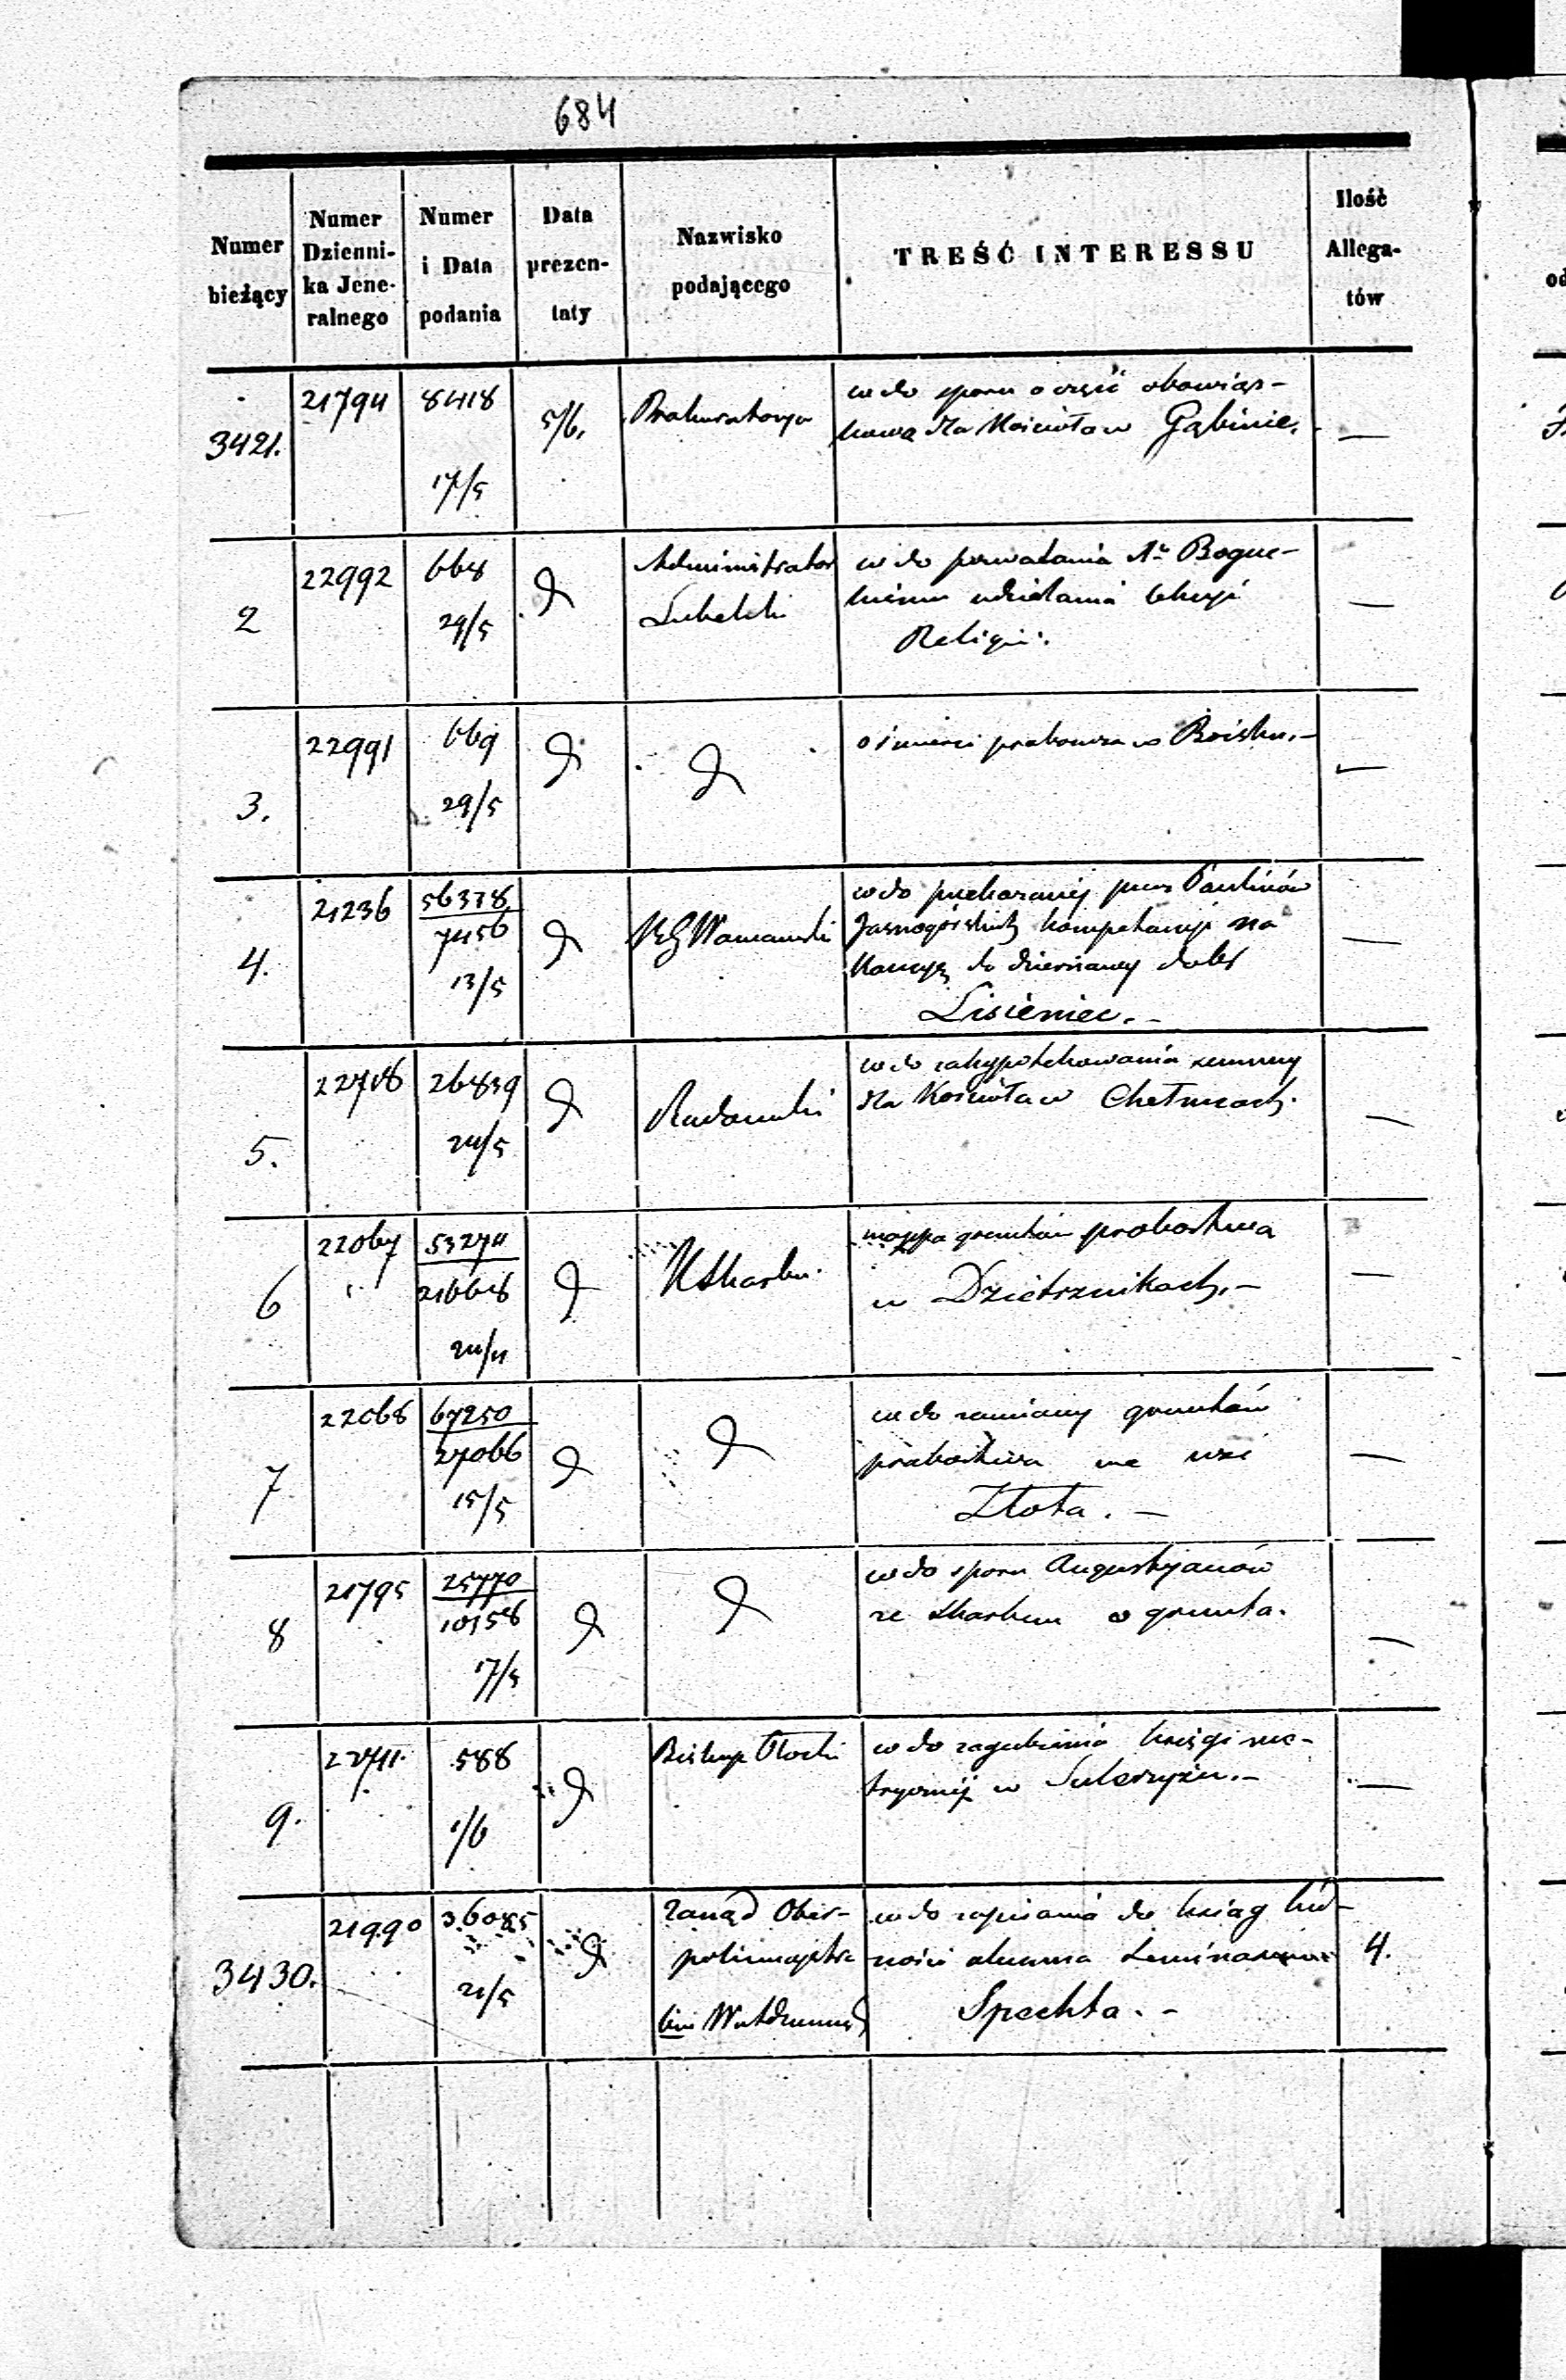 684
Numer bieżący
Numer Dzienni- ka Jene- ralnego
Numer i Data podania
Data prezen- taty
Nazwisko podającego
TREŚĆ INTERESSU
Ilość Allega- tów
3421. 21794 8418 17/5 5/6. Prokuratorya
w do sporu o część obowiąz-
kową dla Kościoła w Gąbinie. —
2 22992 668 29/5 Administrator Lubelski
w do pozwalania Bogue-
udzielania lekcyi
Religii. —
3. 22991 669 29/5
o śmierci proboszcza w Boisku. — —
4. 21236 56378 7456 13/5 RG Warszawski
w do przekazanéj przez Paulinów
Jasnogórskich kompetencyi na
Kaucyę do dzierżawy dóbr
Lisieniec. — —
5. 22718 26839 24/5 Radomski
w do zahypotekowania summy
dla Kościoła w Chełmcach. —
6 22067 53274 21668 24/4 K Skarbu.
mappa gruntów probostwa
w Dzietrznikach. — —
7 22068 67250 27066 15/5
w do zamiany gruntów
probostwa we wsi
Złota. — —
8 21795 25770 10358 17/5
w do sporu Augustyanów
ze Skarbem o grunta. —
9. 22711. 588 1/6 Biskup Płocki
w do zagubienia księgi me-
trycznéj w Sulerzyżu. — —
3430. 21990 36085 21/5 Zarząd Ober-
policmajstra
w do zapisania do ksiąg lud-
ności alumna Seminarium
Spechta. — 4.